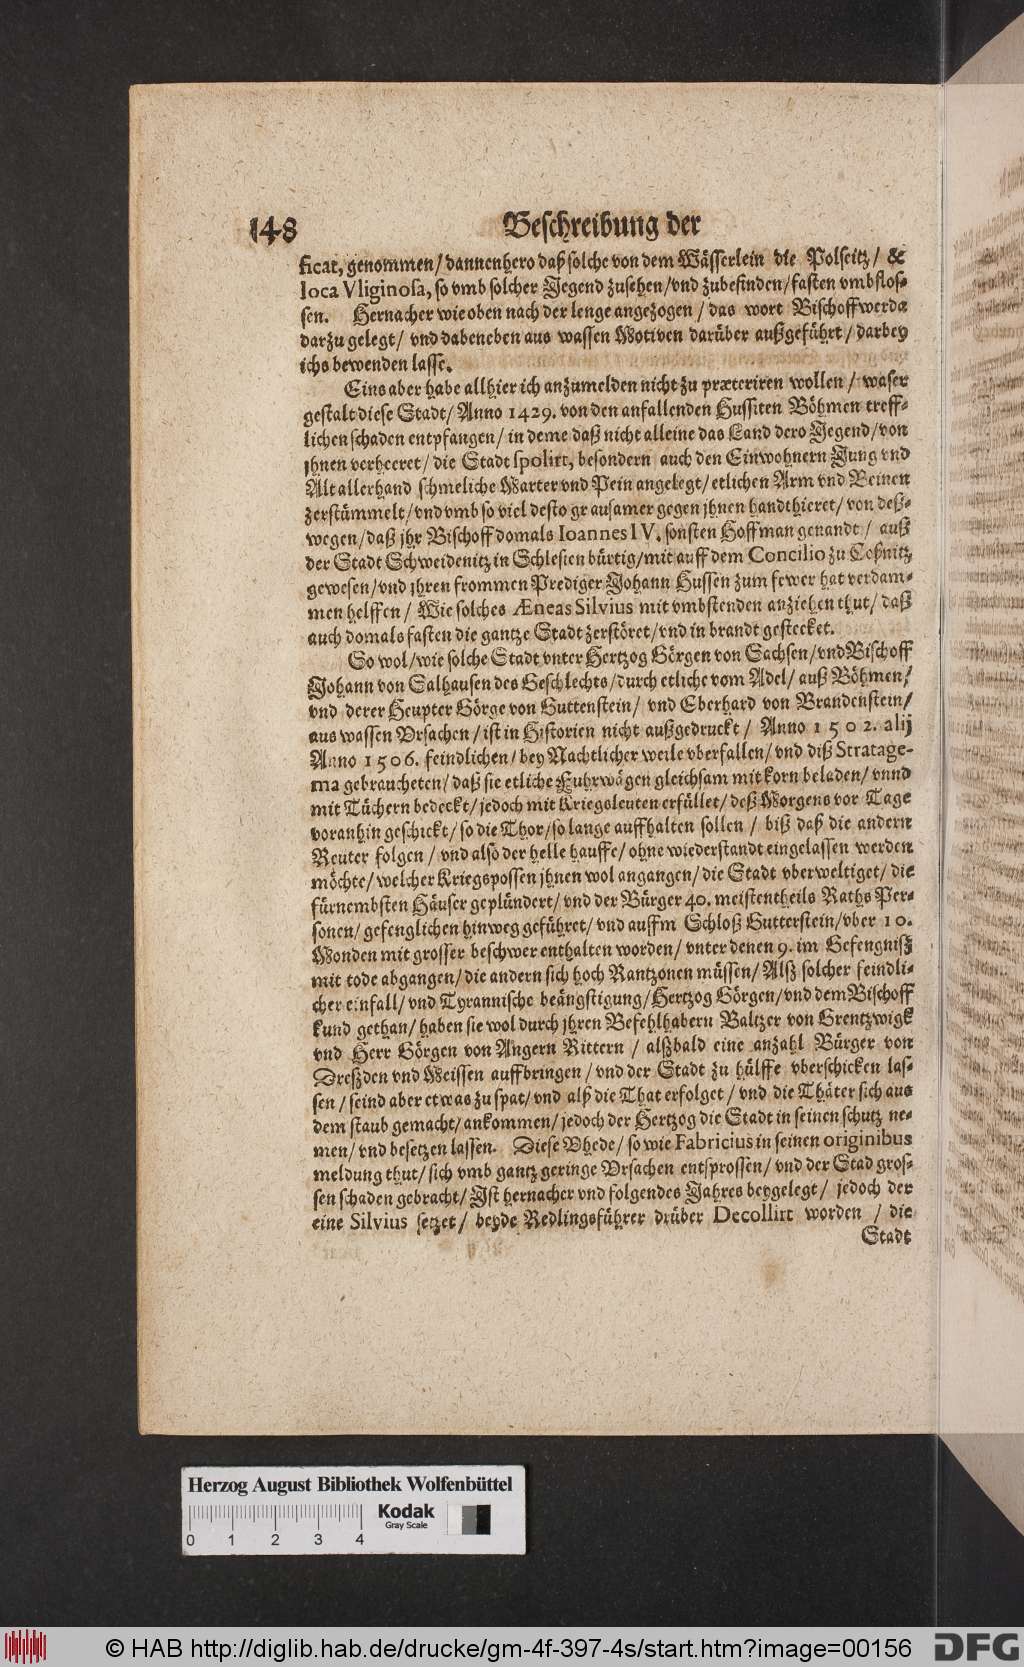 148 Beschreibung der
ficat, genommen/ dannenhero daß solche von dem Wässerlein die Polseitz/ &
loca Vliginosa, so vmb solcher Jegend zusehen/ vnd zubefinden/ fasten vmbflos-
sen. Hernacher wie oben nach der lenge angezogen/ das wort Bischoffwerda
darzu gelegt/ vnd dabeneben aus wassen Motiven darüber außgeführt/ darbey
ichs bewenden lasse.
Eins aber habe allhier ich anzumelden nicht zu præteriren wollen/ waser
gestalt diese Stadt/ Anno 1429. von den anfallenden Hussiten Böhmen treff-
lichen schaden entpfangen/ in deme daß nicht alleine das Land dero Jegend/ von
jhnen verheeret/ die Stadt spolirt, besondern auch den Einwohnern Jung vnd
Alt allerhand schmeliche Marter vnd Pein angelegt/ etlichen Arm vnd Beinen
zerstümmelt/ vnd vmb so viel desto grausamer gegen jhnen handthieret/ von deß-
wegen/ daß jhr Bischoff domals Ioannes IV. sonsten Hoffman genandt/ auß
der Stadt Schweidenitz in Schlesien bürtig/ mit auff dem Concilio zu Coßnitz
gewesen/ vnd jhren frommen Prediger Johann Hussen zum fewer hat verdam-
men helffen/ Wie solches Æneas Silvius mit vmbstenden anziehen thut/ daß
auch domals fasten die gantze Stadt zerstöret/ vnd in brandt gestecket.
So wol/ wie solche Stadt vnter Hertzog Görgen von Sachsen/ vnd Bischoff
Johann von Salhausen des Geschlechts/ durch etliche vom Adel/ auß Böhmen/
vnd derer Heupter Görge von Guttenstein/ vnd Eberhard von Brandenstein/
aus wassen Vrsachen/ ist in Historien nicht außgedruckt/ Anno 1502. alij
Anno 1506. feindlichen/ bey Nachtlicher weile vberfallen/ vnd diß Stratage-
ma gebraucheten/ daß sie etliche Fuhrwägen gleichsam mit korn beladen/ vnnd
mit Tüchern bedeckt/ jedoch mit Kriegsleuten erfüllet/ deß Morgens vor Tage
voranhin geschickt/ so die Thor/ so lange auffhalten sollen/ biß daß die andern
Reuter folgen/ vnd also der helle hauffe/ ohne wiederstandt eingelassen werden
möchte/ welcher Kriegspossen jhnen wol angangen/ die Stadt vberweltiget/ die
fürnembsten Häuser geplündert/ vnd der Bürger 40. meistentheils Raths Per-
sonen/ gefenglichen hinweg geführet/ vnd auffm Schloß Gutterstein/ vber 10.
Monden mit grosser beschwer enthalten worden/ vnter denen 9. im Gefengniß
mit tode abgangen/ die andern sich hoch Rantzonen müssen/ Alß solcher feindli-
cher einfall/ vnd Tyrannische beängstigung/ Hertzog Görgen/ vnd dem Bischoff
kund gethan/ haben sie wol durch jhren Befehlhabern Baltzer von Grentzwigk
vnd Herr Görgen von Angern Rittern/ alßbald eine anzahl Bürger von
Dreßden vnd Meissen auffbringen/ vnd der Stadt zu hülffe vberschicken las-
sen/ seind aber etwas zu spat/ vnd alß die That erfolget/ vnd die Thäter sich aus
dem staub gemacht/ ankommen/ jedoch der Hertzog die Stadt in seinen schutz ne-
men/ vnd besetzen lassen. Diese Vhede/ so wie Fabricius in seinen originibus
meldung thut/ sich vmb gantz geringe Vrsachen entsprossen/ vnd der Stad gros-
sen schaden gebracht/ Ist hernacher vnd folgendes Jahres beygelegt/ jedoch der
eine Silvius setzet/ beyde Redlingsführer drüber Decollirt worden/ die
Stadt
Herzog August Bibliothek Wolfenbüttel
Kodak
Gray Scale
0 1 2 3 4
© HAB http://diglib.hab.de/drucke/gm-4f-397-4s/start.htm?image=00156
DFG